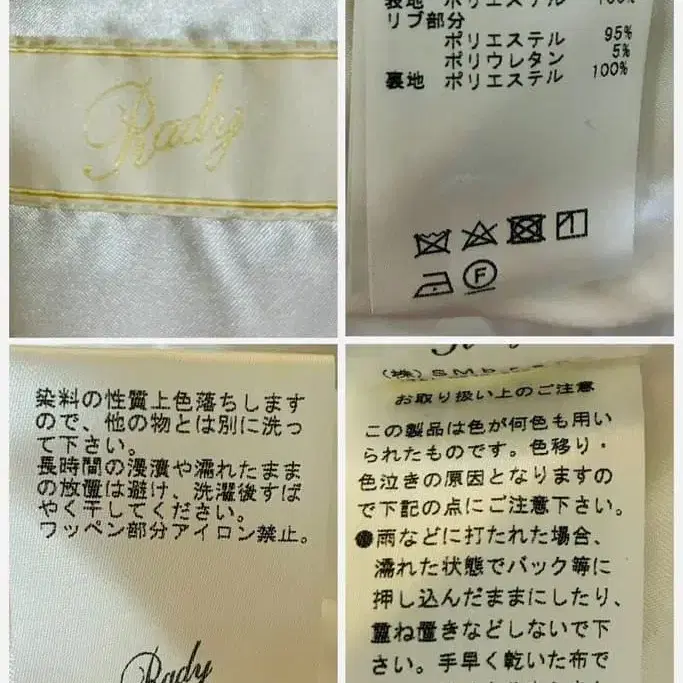 Rady
表地 ポリエステル 100%
リブ部分
ポリエステル 95%
ポリウレタン 5%
裏地 ポリエステル 100%
F
染料の性質上色落ちします
ので、他の物とは別に洗っ
て下さい。
長時間の浸漬や濡れたまま
の放置は避け、洗濯後すば
やく干してください。
ワッペン部分アイロン禁止。
Rady
(株)
お取り扱い上のご注意
この製品は色が何色も用い
られたものです。色移り・
色泣きの原因となりますの
で下記の点にご注意下さい。
●雨などに打たれた場合、
濡れた状態でバック等に
押し込んだままにしたり、
重ね置きなどしないで下
さい。手早く乾いた布で